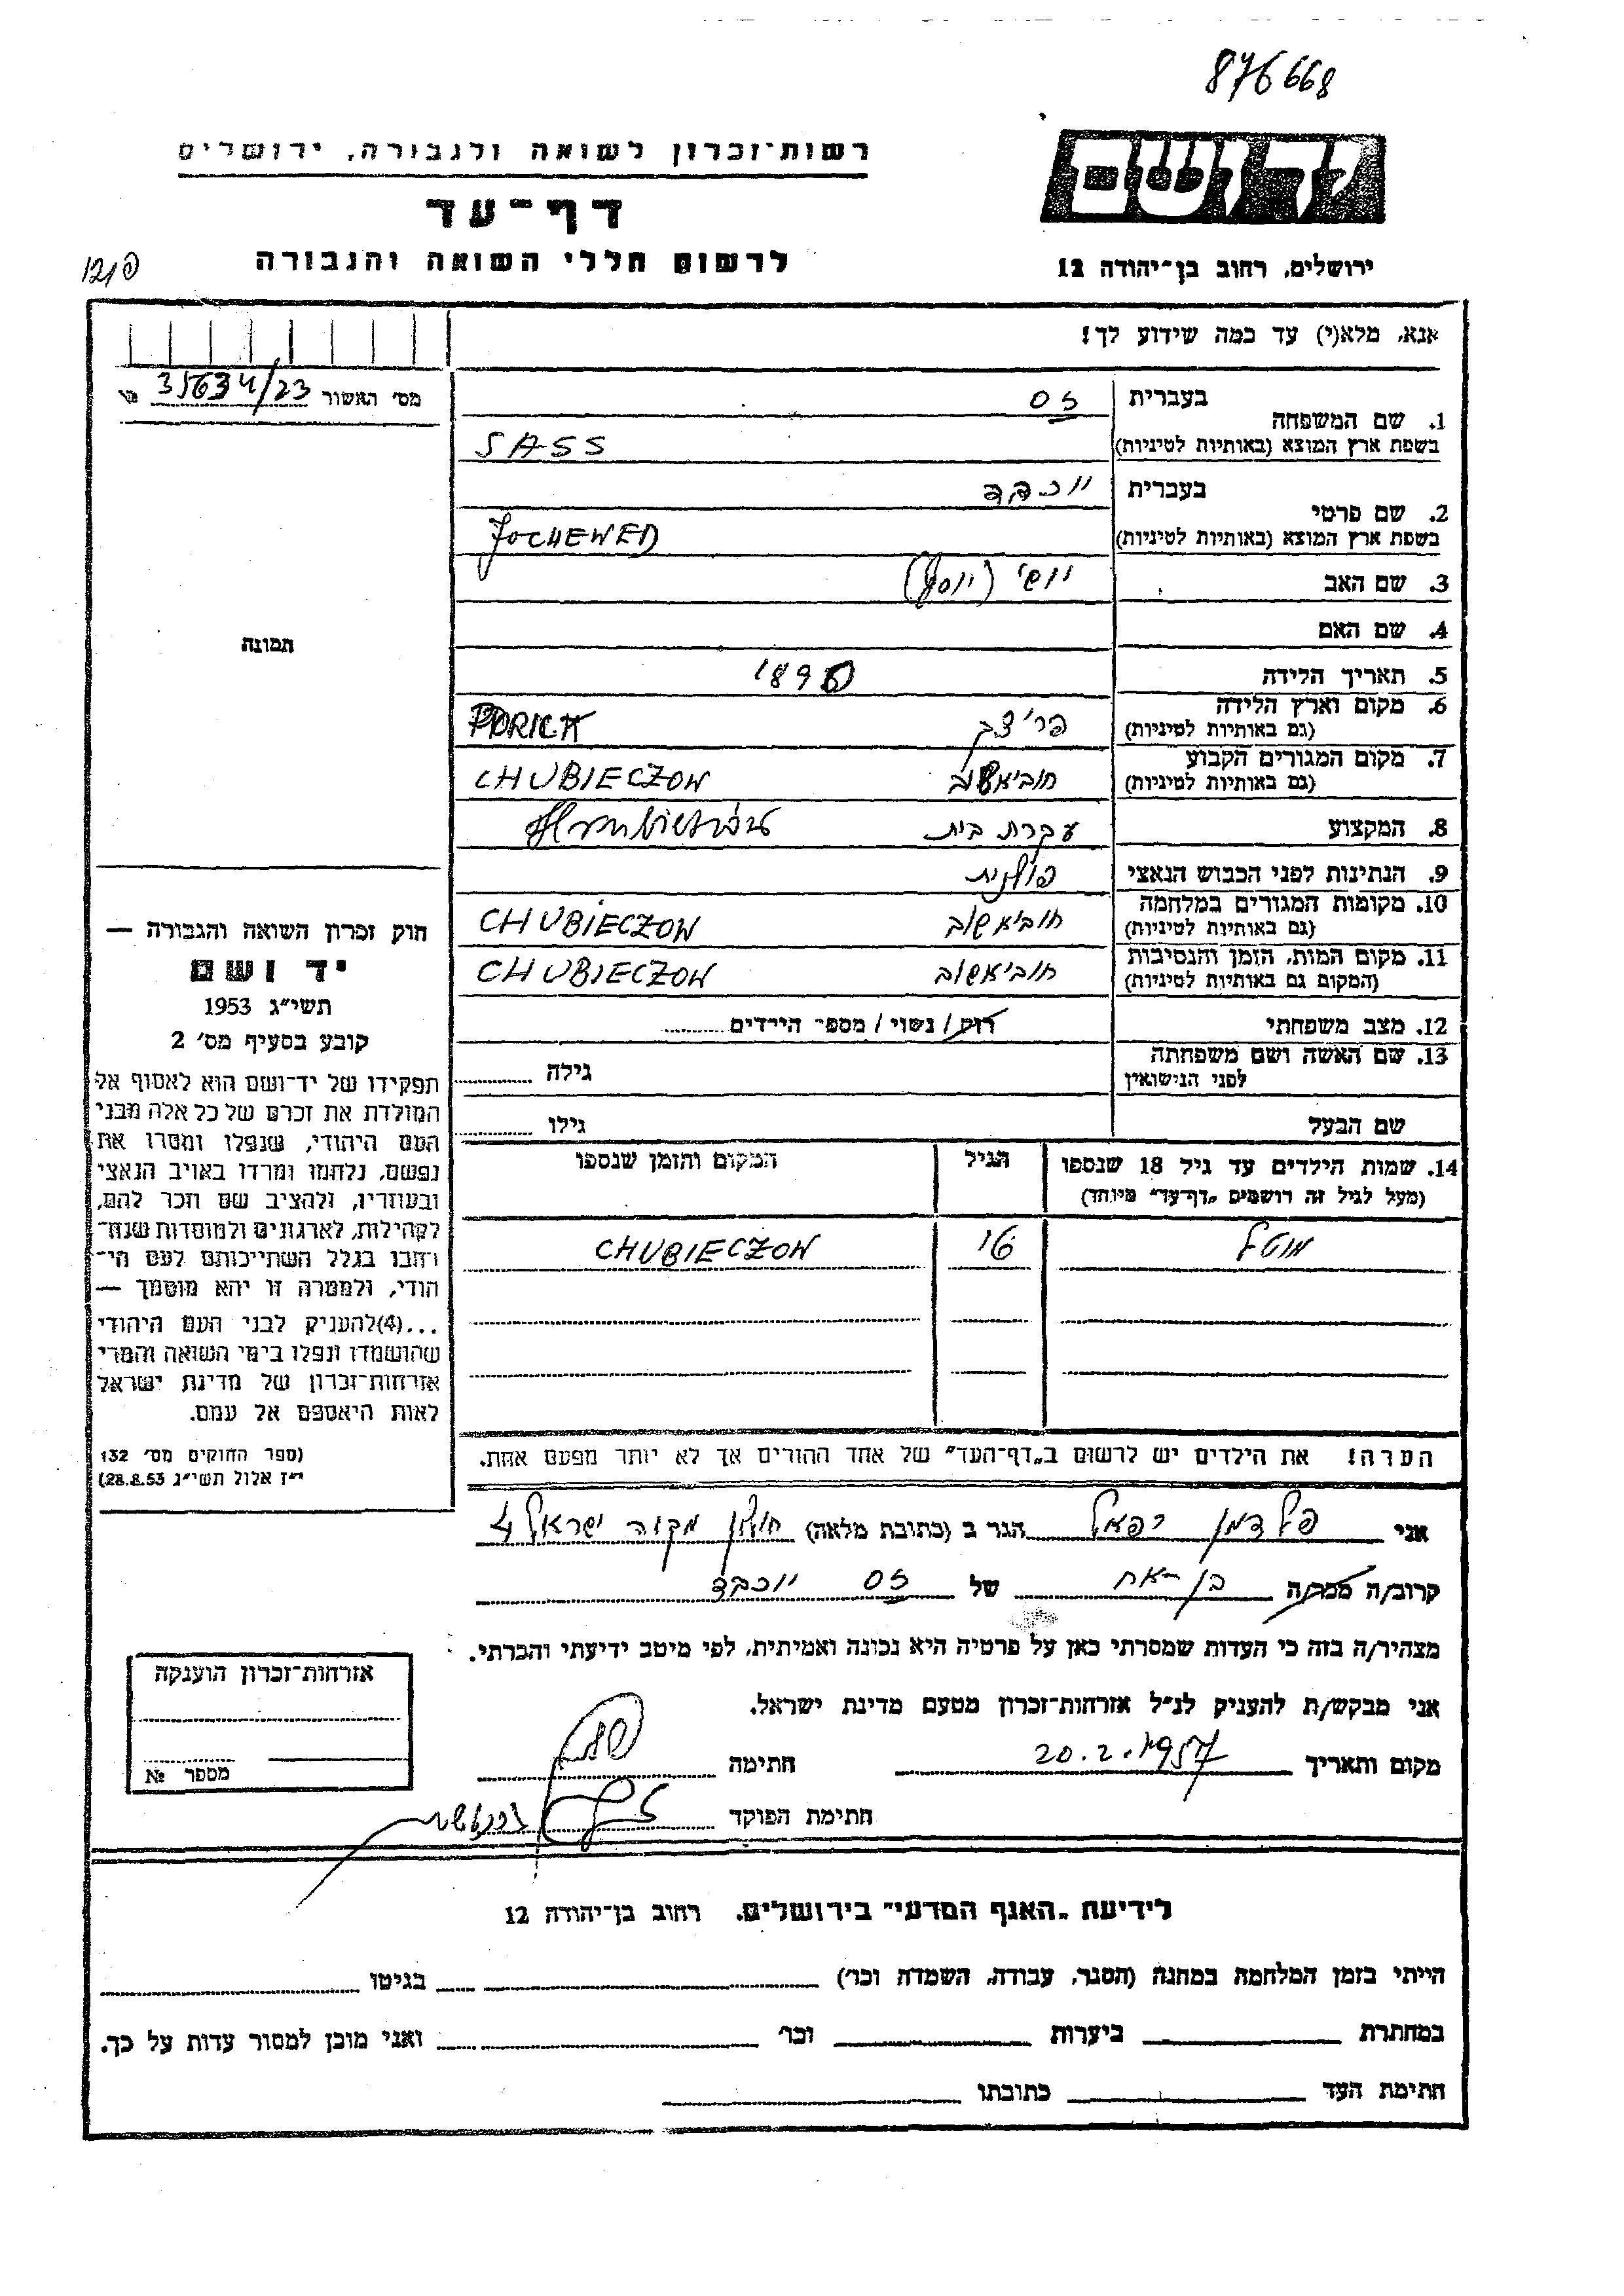 876668
רשות-זכרון לשואה ולגבורה, ירושלים
יד ושם
דף-עד
לרשום חללי השואה והגבורה
ירושלים, רחוב בן-יהודה 12
אנא, מלא(י) עד כמה שידוע לך!
מס' האשור 35634/23
1. שם המשפחה
בעברית סס
בשפת ארץ המוצא (באותיות לטיניות) SASS
2. שם פרטי
בעברית יוכבד
בשפת ארץ המוצא (באותיות לטיניות) JOCHEWED
3. שם האב יושי (יוסף)
4. שם האם
תמונה
5. תאריך הלידה
6. מקום וארץ הלידה
(גם באותיות לטיניות)
7. מקום המגורים הקבוע
(גם באותיות לטיניות) CHUBIECZOW
8. המקצוע עקרת בית
9. הנתינות לפני הכבוש הנאצי פולנית
10. מקומות המגורים במלחמה
(גם באותיות לטיניות) חוביאשוב CHUBIECZOW
11. מקום המות, הזמן והנסיבות
(המקום גם באותיות לטיניות) חוביאשוב CHUBIECZOW
12. מצב משפחתי רוק/ נשוי/ מספר הילדים
13. שם האשה ושם משפחתה
לפני הנישואין גילה
שם הבעל גילו
14. שמות הילדים עד גיל 18 שנספו הגיל המקום והזמן שנספו
(מעל לגיל זה רושמים „דף-עד" מיוחד)
מוטל 16 CHUBIECZOW
הערה! את הילדים יש לרשום ב„דף-העד" של אחד ההורים אך לא יותר מפעם אחת.
חוק זכרון השואה והגבורה —
יד ושם
תשי"ג 1953
קובע בסעיף מס' 2
תפקידו של יד-ושם הוא לאסוף אל
המולדת את זכרם של כל אלה מבני
העם היהודי, שנפלו ומסרו את
נפשם, נלחמו ומרדו באויב הנאצי
ובעוזריו, ולהציב שם וזכר להם,
לקהילות, לארגונים ולמוסדות שנח-
רבו בגלל השתייכותם לעם הי-
הודי, ולמטרה זו יהא מוסמך —
...(4)להעניק לבני העם היהודי
שהושמדו ונפלו בימי השואה והמרי
אזרחות-זכרון של מדינת ישראל
לאות היאספם אל עמם.
(ספר החוקים מס' 132
י"ז אלול תשי"ג 28.8.53)
אני פלדמן רפאל הגר ב (כתובת מלאה) חולון מקוה ישראל 4
קרוב/ה מכר/ה בן-אח של סס יוכבד
מצהיר/ה בזה כי העדות שמסרתי כאן על פרטיה היא נכונה ואמיתית, לפי מיטב ידיעתי והכרתי.
אני מבקש/ת להעניק לנ"ל אזרחות-זכרון מטעם מדינת ישראל.
מקום ותאריך 20.2.1957 חתימה
חתימת הפוקד
אזרחות-זכרון הוענקה
מספר №
לידיעת „האגף המדעי" בירושלים, רחוב בן-יהודה 12
הייתי בזמן המלחמה במחנה (הסגר, עבודה, השמדה וכו') בגיטו
במחתרת ביערות וכו' ואני מוכן למסור עדות על כך.
חתימת העד כתובתו